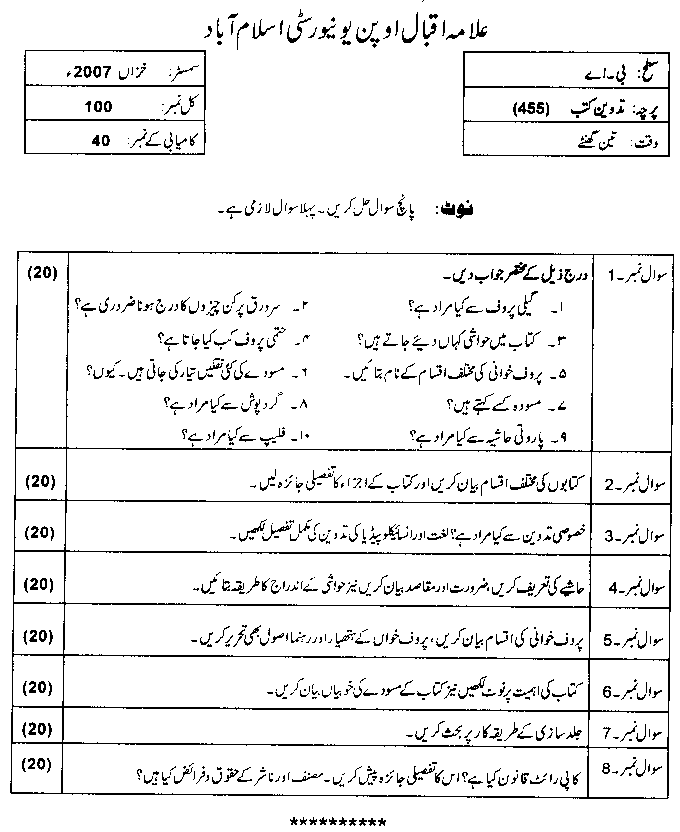 علامہ اقبال اوپن یونیورسٹی اسلام آباد
سطح: بی۔اے
پرچہ: تدوین کتب (455)
وقت: تین گھنٹے
سمسٹر: خزاں 2007ء
کل نمبر: 100
کامیابی کے نمبر: 40
نوٹ: پانچ سوال حل کریں۔ پہلا سوال لازمی ہے۔
سوال نمبر۔1 درج ذیل کے مختصر جواب دیں۔ (20)
۱۔ گیلی پروف سے کیا مراد ہے؟ ۲۔ سرورق پر کن چیزوں کا درج ہونا ضروری ہے؟
۳۔ کتاب میں حواشی کہاں دیئے جاتے ہیں؟ ۴۔ حتمی پروف کب کیا جاتا ہے؟
۵۔ پروف خوانی کی مختلف اقسام کے نام بتائیں۔ ۶۔ مسودے کی کئی نقلیں تیار کی جاتی ہیں۔ کیوں؟
۷۔ مسودہ کسے کہتے ہیں؟ ۸۔ گرد پوش سے کیا مراد ہے؟
۹۔ پاروتی حاشیہ سے کیا مراد ہے؟ ۱۰۔ فلیپ سے کیا مراد ہے؟
سوال نمبر۔2 کتابوں کی مختلف اقسام بیان کریں اور کتاب کے اجزاء کا تفصیلی جائزہ لیں۔ (20)
سوال نمبر۔3 خصوصی تدوین سے کیا مراد ہے؟ لغت اور انسائیکلوپیڈیا کی تدوین کی مکمل تفصیل لکھیں۔ (20)
سوال نمبر۔4 حاشیے کی تعریف کریں، ضرورت اور مقاصد بیان کریں نیز حواشی کے اندراج کا طریقہ بتائیں۔ (20)
سوال نمبر۔5 پروف خوانی کی اقسام بیان کریں، پروف خواں کے ہتھیار اور رہنما اصول بھی تحریر کریں۔ (20)
سوال نمبر۔6 کتاب کی اہمیت پر نوٹ لکھیں نیز کتاب کے مسودے کی خوبیاں بیان کریں۔ (20)
سوال نمبر۔7 جلد سازی کے طریقہ کار پر بحث کریں۔ (20)
سوال نمبر۔8 کاپی رائٹ قانون کیا ہے؟ اس کا تفصیلی جائزہ پیش کریں۔ مصنف اور ناشر کے حقوق و فرائض کیا ہیں؟ (20)
**********